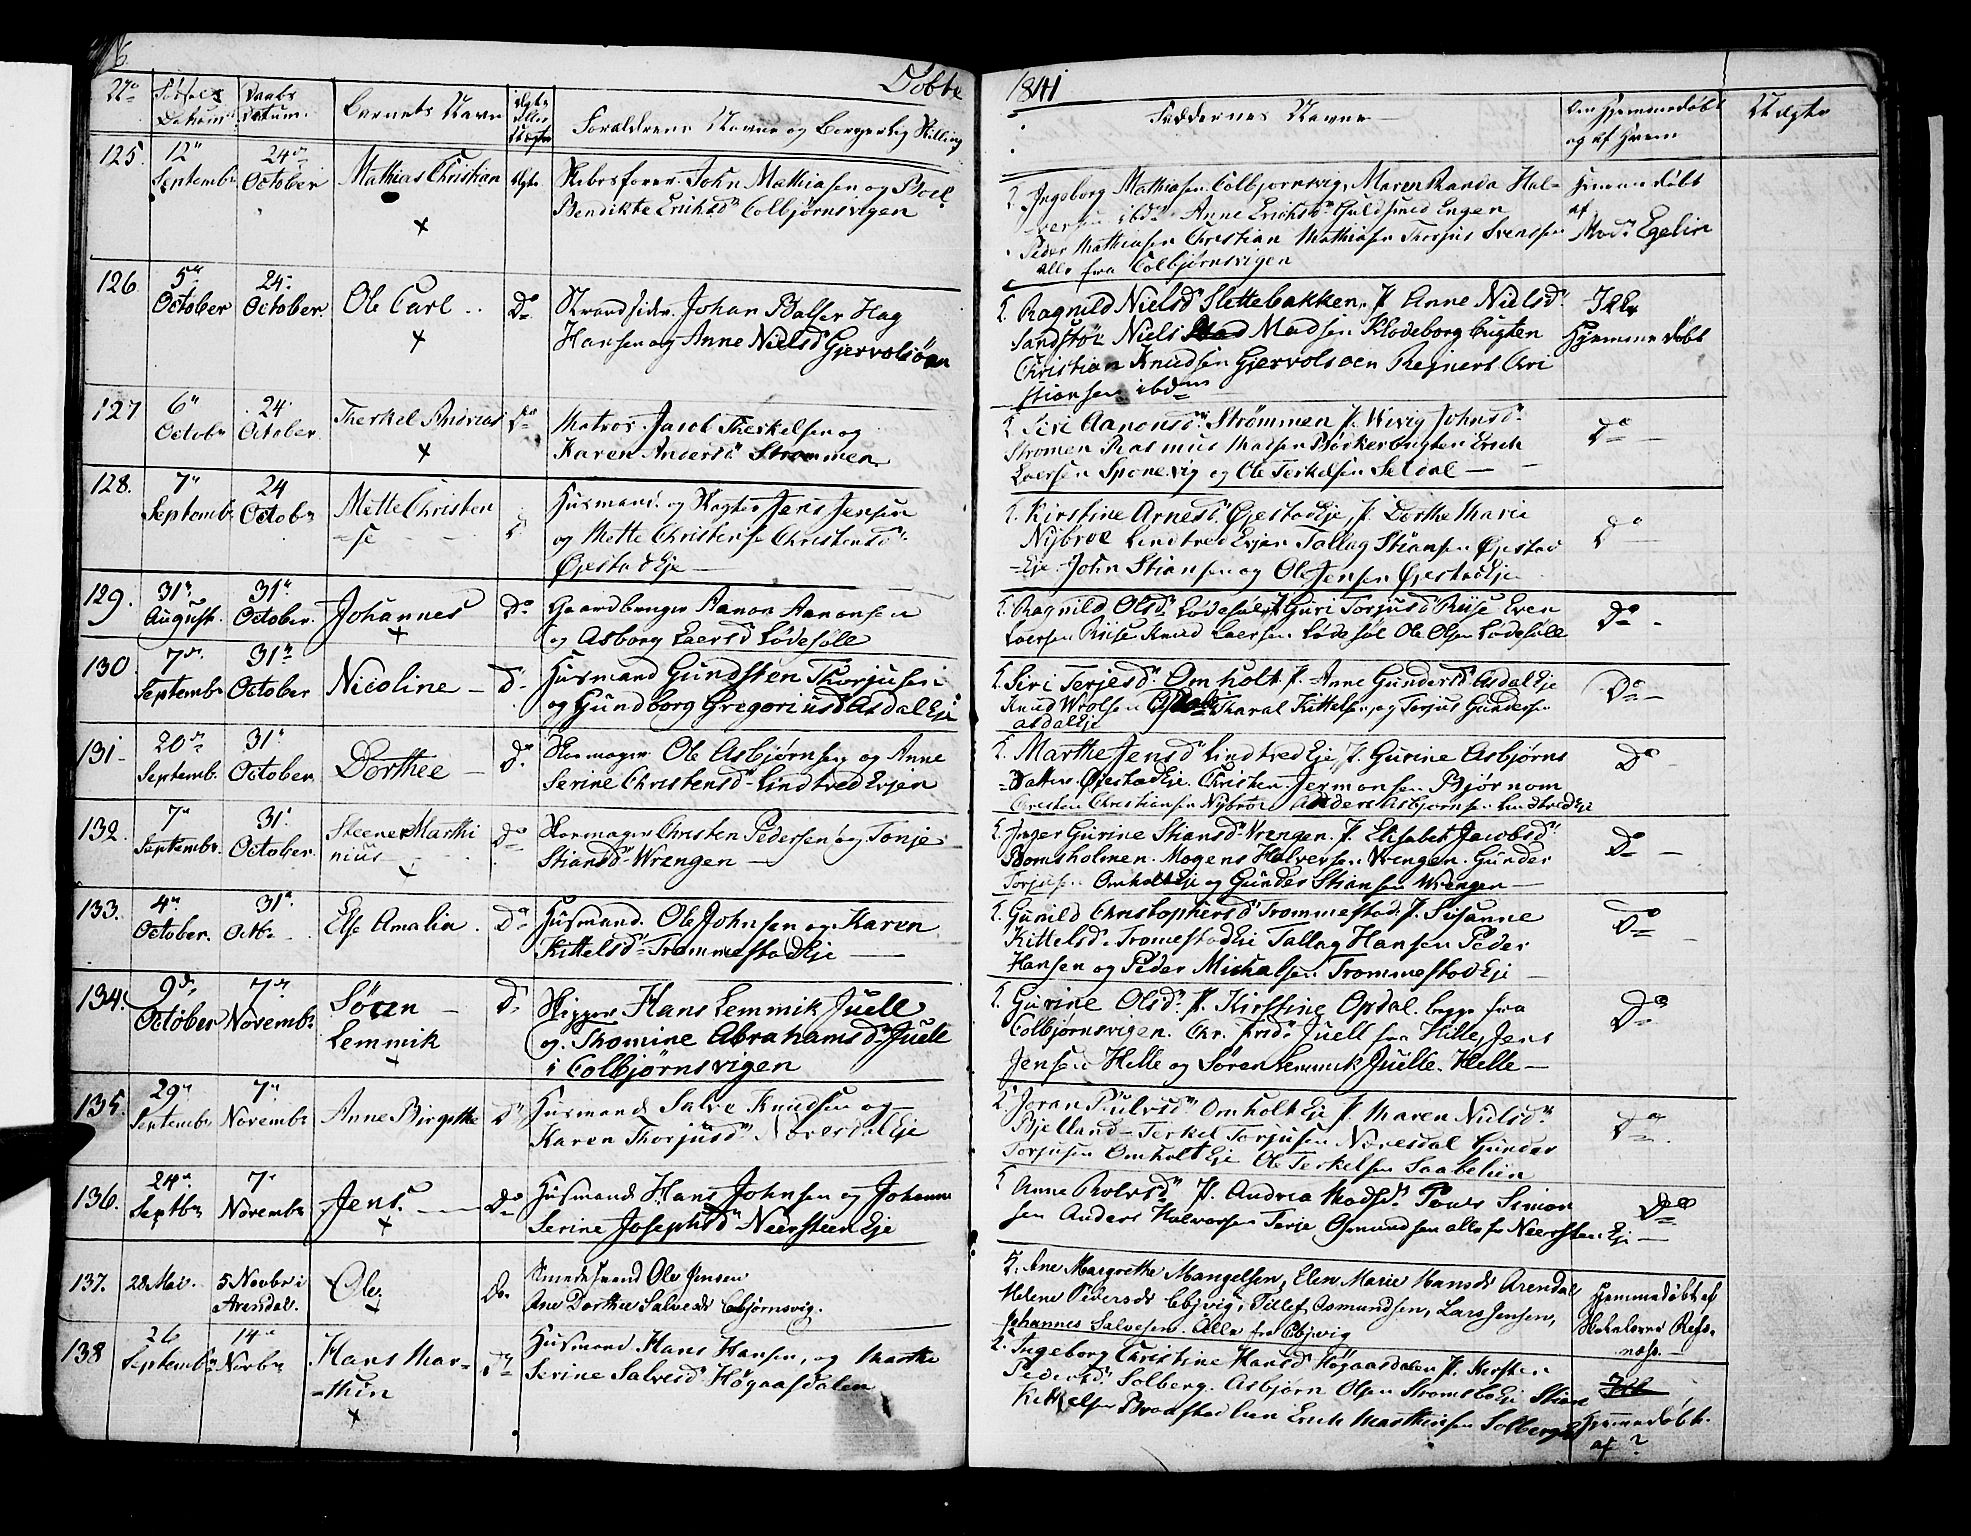 6.
Døbte
1841
No
Fødsels Datum
Daabs Datum.
Barnets Navn
Ægte eller Uægte
Forældrenes Navne og Borgerlig Stilling
Faddernes Navne
Om Hjemmedøbt og af Hvem
Uægte
125. 12 September 24 October Mathias Christian Ægte
John Mathiasen og Boel
Bendikte Erichsd Colbjørnsvigen
Ingeborg Mathiasen Colbjørnsvig, Maren Randa Hal-
versen ibd. Anne Erichsd Guldsmed Engen
Peder Mathiasen Christian Mathiasen Thorjus Svensen
alle fra Colbjørnsvigen
Hjemmedøbt
af
Mad. Egelin
126. 5 October 24 October Ole Carl Do
Strandsidder Johan Balser Hag
Hansen og Anne Nielsd Gjervolsøen
Ragnild Nielsd Slettebakken, J. Anne Nielsd
Sandstø Niels Madsen Klodeborg bugten
Christian Knudsen Gjervolsøen Reinert Chri
stiansen ibdm
Ikke
Hjemmedøbt
127 6 October 24 October Therkel Andreas Do
Matros Jacob Therkelsen og
Karen Andersd Strømmen
Siri Aanonsd Strømmen J. Wivig Johnsd
Strømen Rasmus Madsen Bøckerbugten Erich
Laersen Sponevig og Ole Terkelsen Seldal
Do
128. 7 September 24 October Mette Christen
=se
Husmand og Jens Jensen
og Mette Christense Christensd
Øjestad Eje
Kirstine Arnesd Øjestad Eje, J. Dorthe Marie
Nybroe Lindtved Tallag Stiansen Øjestad
=Eje John Stiansen og Ole Jensen Øjestad Eje
Do
129. 31 August 31 October Johannes Do
Gaardbruger Aanon Aanonsen
og Asborg Laersd Lødesølle
Ragnild Olsd Lødesøl J. Guri Torjusd Riise Even
Laersen Riise Knud Laersen Lødesøl Ole Olsen Lødesølle
Do
130. 7 September 31 October Nicoline Do
Husmand Gundsten Thorjusen
og Gundborg Gregoriusd Asdal Eje
Siri Terjesd Omholt J. Anne Gundersd Asdal Eje
Knud Wrolsen Tharal Kittelsen, og Torjus Gundersen
Asdal Eje
Do
131. 20 September 31 October Dorthee Do
Ole Asbjørnsen og Anne
Serine Christensd Lindtved Evjen
Marthe Jensd Lindtved Eje, J. Gurine Asbjørns
=Datter Øjestad Eje. Christen Jermonsen Bjørnom
Christen Christiansen Nybroe Anders Asbjørnsen Lindtved Eje
Do
132. 7 September 31 October Steener Marthi
nius Do
Christen Pedersen og Tonje
Stiansd Wrengen
Inger Gurine Stiansd Wrengen. J. Elisabet Jacobsd
Romsholmen. Mogens Halversen Wrengen. Gunder
Torjusen Omholt Eje og Gunder Stiansen Wrengen
Do
133. 4 October 31 Octbr Else Amalia Do
Husmand Ole Johnsen og Karen
Kittelsd Trommestad Eje
Gunild Christophersd Trommestad J. Susanne
Kittelsd Tromestad Eje Tallag Hansen Peder
Hansen og Peder Michalsen Trommestad Eje
Do
134. 9 October 7 November Søren
Lemmik
Do
Skipper Hans Lemmik Juell
og Thomine Abrahamsd Juell
i Colbjørnsvigen
Gurine Olsd J. Kirstine Opdal begge fra
Colbjørnsvigen. Chr. Juell fra Hille, Jens
Jensen Helle og Søren Lemmik Juelle. Helle
Do
135. 29 September 7 November Anne Birgithe Do
Husmand Salve Knudsen og
Karen Thorjusd Nævesdal Eje
Joran Omholt Eje J. Maren Nielsd
Bjelland Terkel Torjusen Nævesdal Gunder
Torjusen Omholt Eje Ole Terkelsen
Do
136. 24 Septbr 7 November Jens. Do
Husmand Hans Johnsen og Johanne
Serine Josephsd Neersteen Eje
Anne Rolvsd J. Andrea Madsd Povel Simon
sen Anders Halvorsen Terje Osmundsen alle fr Neersten Eje
Do
137. 28 Mai. 5 Novbr i
Arendal. Ole Do
Ole Jensen
Ane Dorthe Salvesd Cbjørnsvig.
Ane Margrethe Mangelsen, Elen Marie Hansd Arendal
Helene Pedersd Cbjvig, Tillef Osmundsen, Lars Jensen,
Johannes Salvesen. Alle fra Cbjvig
Hjemmedøbt af
Skolelærer Refs-
næs.
138 26 September 14 Novbr Hans Mar-
=thin Do
Husmand Hans Hansen, og Marthe
Serine Salvesd Høgaasdalen
Ingeborg Christine Hansd Høgaasdalen J. Kirsten
Pedersd Solberg. Asbjørn Olsen Strømsbo Eje Stian
Kittelsen Erich Mathisen Solberg
Hjemmedøbt.
af ?